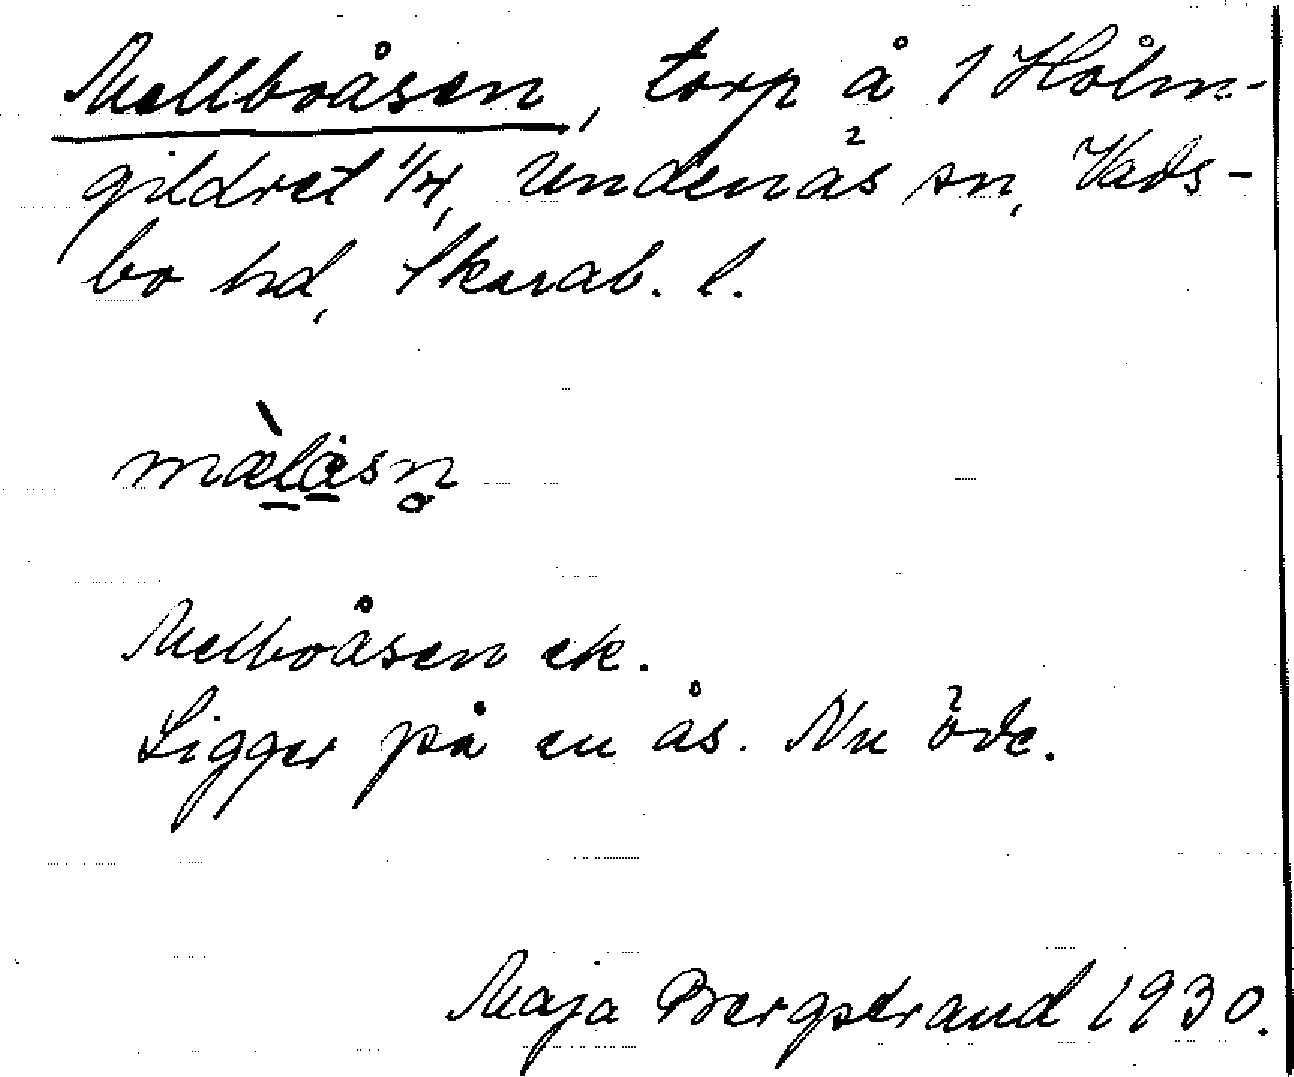 Mellboåsen, torp å 1 Hålm-
gildret 1/4, Undenäs sn, Vads-
bo hd, Skarab. l.
mæ̀låsn̥
Mellboåsen ek.
Ligger på en ås. Nu öde.
Maja Bergstrand 1930.